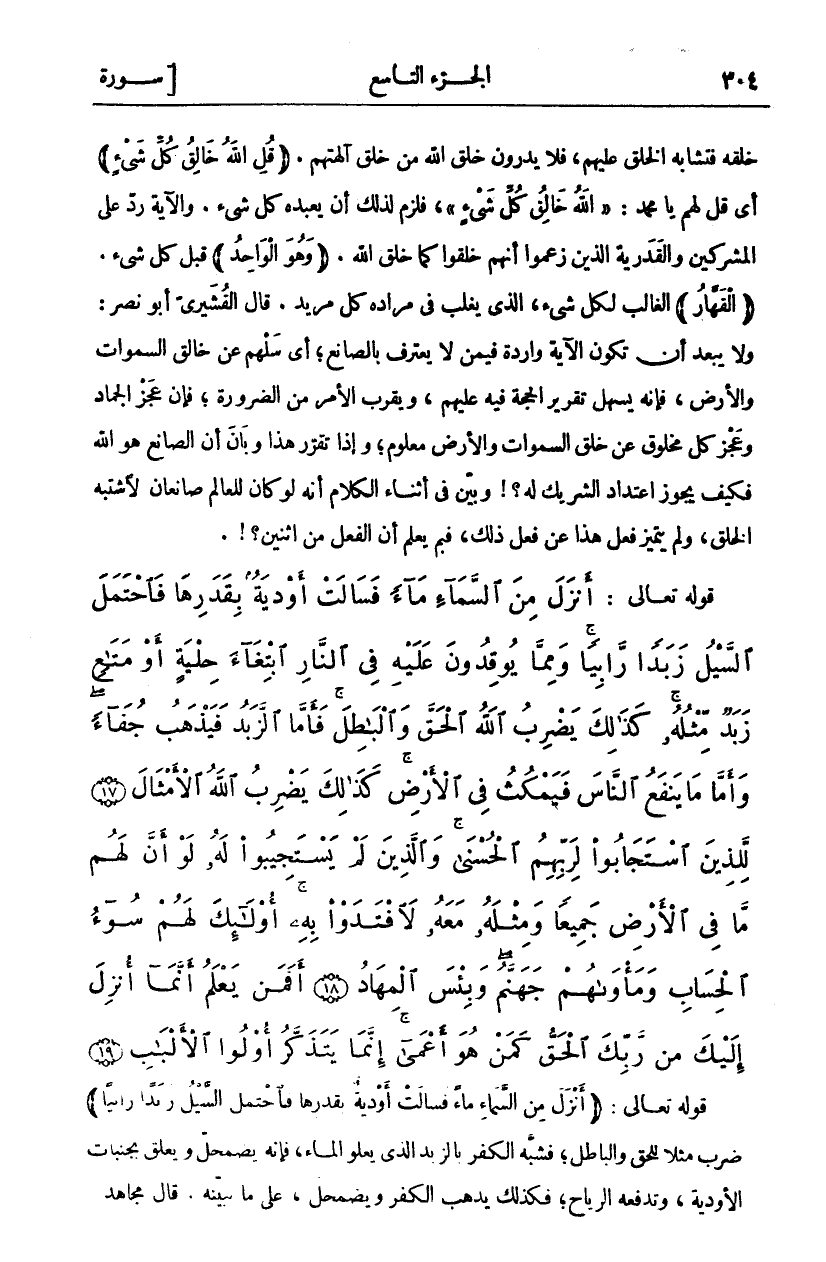 ٣٠٤ الجـزء التـاسع [ سـورة
خلقه فتشابه الخلق عليهم، فلا يدرون خلق الله من خلق آلهتهم . ﴿ قُلِ اللهُ خَالِقُ كُلِّ شَيْءٍ ﴾
أى قل لهم يا محمد : « اللهُ خَالِقُ كُلِّ شَيْءٍ »، فلزم لذلك أن يعبده كل شىء . والآية ردّ على
المشركين والقَدَرية الذين زعموا أنهم خلقوا كما خلق الله . ﴿ وَهُوَ الْوَاحِدُ ﴾ قبل كل شىء .
﴿ الْقَهَّارُ ﴾ الغالب لكل شىء، الذى يغلب فى مراده كل مريد . قال القُشَيرىّ أبو نصر :
ولا يبعد أن تكون الآية واردة فيمن لا يعترف بالصانع؛ أى سَلْهم عن خالق السموات
والأرض ، فإنه يسهل تقرير الحجة فيه عليهم ، ويقرب الأمر من الضرورة ؛ فإن عَجْز الجماد
وعَجْز كل مخلوق عن خلق السموات والأرض معلوم؛ وإذا تقرّر هذا وبَانَ أن الصانع هو الله
فكيف يجوز اعتداد الشريك له؟! وبيّن فى أثناء الكلام أنه لو كان للعالم صانعان لاشتبه
الخلق، ولم يتميّز فعل هذا عن فعل ذلك، فبم يعلم أن الفعل من اثنين؟! .
قوله تعـالى : أَنزَلَ مِنَ ٱلسَّمَآءِ مَآءً فَسَالَتْ أَوْدِيَةٌۢ بِقَدَرِهَا فَٱحْتَمَلَ
ٱلسَّيْلُ زَبَدًا رَّابِيًا ۚ وَمِمَّا يُوقِدُونَ عَلَيْهِ فِى ٱلنَّارِ ٱبْتِغَآءَ حِلْيَةٍ أَوْ مَتَٰعٍ
زَبَدٌ مِّثْلُهُۥ ۚ كَذَٰلِكَ يَضْرِبُ ٱللَّهُ ٱلْحَقَّ وَٱلْبَٰطِلَ ۚ فَأَمَّا ٱلزَّبَدُ فَيَذْهَبُ جُفَآءً ۖ
وَأَمَّا مَا يَنفَعُ ٱلنَّاسَ فَيَمْكُثُ فِى ٱلْأَرْضِ ۚ كَذَٰلِكَ يَضْرِبُ ٱللَّهُ ٱلْأَمْثَالَ ﴿١٧﴾
لِلَّذِينَ ٱسْتَجَابُوا۟ لِرَبِّهِمُ ٱلْحُسْنَىٰ ۚ وَٱلَّذِينَ لَمْ يَسْتَجِيبُوا۟ لَهُۥ لَوْ أَنَّ لَهُم
مَّا فِى ٱلْأَرْضِ جَمِيعًا وَمِثْلَهُۥ مَعَهُۥ لَٱفْتَدَوْا۟ بِهِۦٓ ۚ أُو۟لَٰٓئِكَ لَهُمْ سُوٓءُ
ٱلْحِسَابِ وَمَأْوَىٰهُمْ جَهَنَّمُ ۖ وَبِئْسَ ٱلْمِهَادُ ﴿١٨﴾ أَفَمَن يَعْلَمُ أَنَّمَآ أُنزِلَ
إِلَيْكَ مِن رَّبِّكَ ٱلْحَقُّ كَمَنْ هُوَ أَعْمَىٰٓ ۚ إِنَّمَا يَتَذَكَّرُ أُو۟لُوا۟ ٱلْأَلْبَٰبِ ﴿١٩﴾
قوله تعـالى : ﴿ أَنْزَلَ مِن السَّمَاءِ مَاءً فَسالَتْ أَوْدِيَةٌ بقدرها فٱحتمل السَّيْلُ زبَدًا رابيًا ﴾
ضرب مثلا للحق والباطل؛ فشبّه الكفر بالزبد الذى يعلو المـاء، فإنه يضمحلّ ويعلق بجنبات
الأودية ، وتدفعه الرياح؛ فكذلك يذهب الكفر ويضمحل ، على ما نبيّنه . قال مجاهد